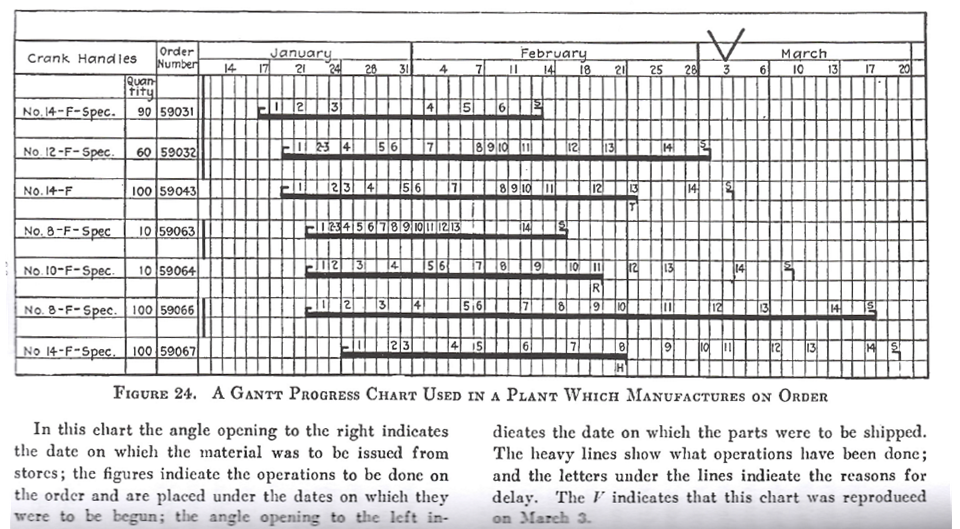 Crank Handles Order Number January February March
14 17 21 24 28 31 4 7 11 14 18 21 25 28 3 6 10 13 17 20
Quan-
tity
1 2 3 4 5 6 S
No. 14-F-Spec. 90 59031
1 2-3 4 5 6 7 8 9 10 11 12 13 14 S
No. 12-F-Spec. 60 59032
1 2 3 4 5 6 7 8 9 10 11 12 13 14 S
No. 14-F 100 59043
T
1 2-3 4 5 6 7 8 9 10 11 12 13 14 S
No. 8-F-Spec 10 59063
1 2 3 4 5 6 7 8 9 10 11 12 13 14 S
No. 10-F-Spec. 10 59064
R
1 2 3 4 5 6 7 8 9 10 11 12 13 14 S
No. 8-F-Spec. 100 59066
1 2 3 4 5 6 7 8 9 10 11 12 13 14 S
No 14-F-Spec. 100 59067
H
FIGURE 24. A GANTT PROGRESS CHART USED IN A PLANT WHICH MANUFACTURES ON ORDER
In this chart the angle opening to the right indicates
the date on which the material was to be issued from
stores; the figures indicate the operations to be done on
the order and are placed under the dates on which they
were to be begun; the angle opening to the left in-
dicates the date on which the parts were to be shipped.
The heavy lines show what operations have been done;
and the letters under the lines indicate the reasons for
delay. The V indicates that this chart was reproduced
on March 3.